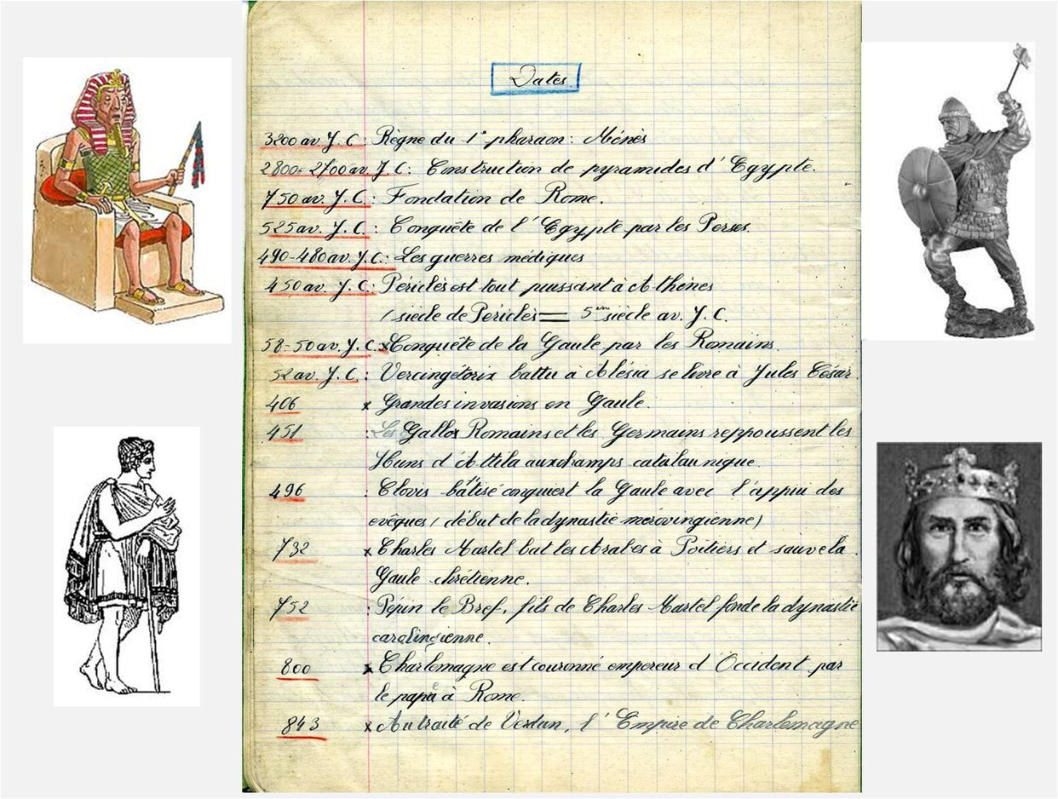 Dates
3200 av. J. C : Règne du 1° pharaon : Ménès
2800-2700 av. J. C : Construction de pyramides d'Egypte.
750 av. J. C. : Fondation de Rome.
525 av. J. C. : Conquête de l'Egypte par les Perses.
490-480 av. J. C. : Les guerres médiques
450 av. J. C. : Périclès est tout puissant à Athènes
( siècle de Périclès = 5ème siècle av. J. C.
58-50 av. J. C. x Conquête de la Gaule par les Romains.
52 av. J. C. : Vercingétorix battu à Alésia se livre à Jules César.
406 x Grandes invasions en Gaule.
451 : Les Gallos Romains et les Germains reppoussent les
Huns d'Attila aux champs catalaunique.
496 : Clovis bâtisé conquiert la Gaule avec l'appui des
evêques ( début de la dynastie mérovingienne)
732 x Charles Martel bat les Arabes à Poitiers et sauve la
Gaule chrétienne.
752 : Pépin le Bref, fils de Charles Martel fonde la dynastie
carolingienne.
800 x Charlemagne est couronné empereur d'Occident par
le papa à Rome.
843 x Au traité de Verdun, l'Empire de Charlemagne